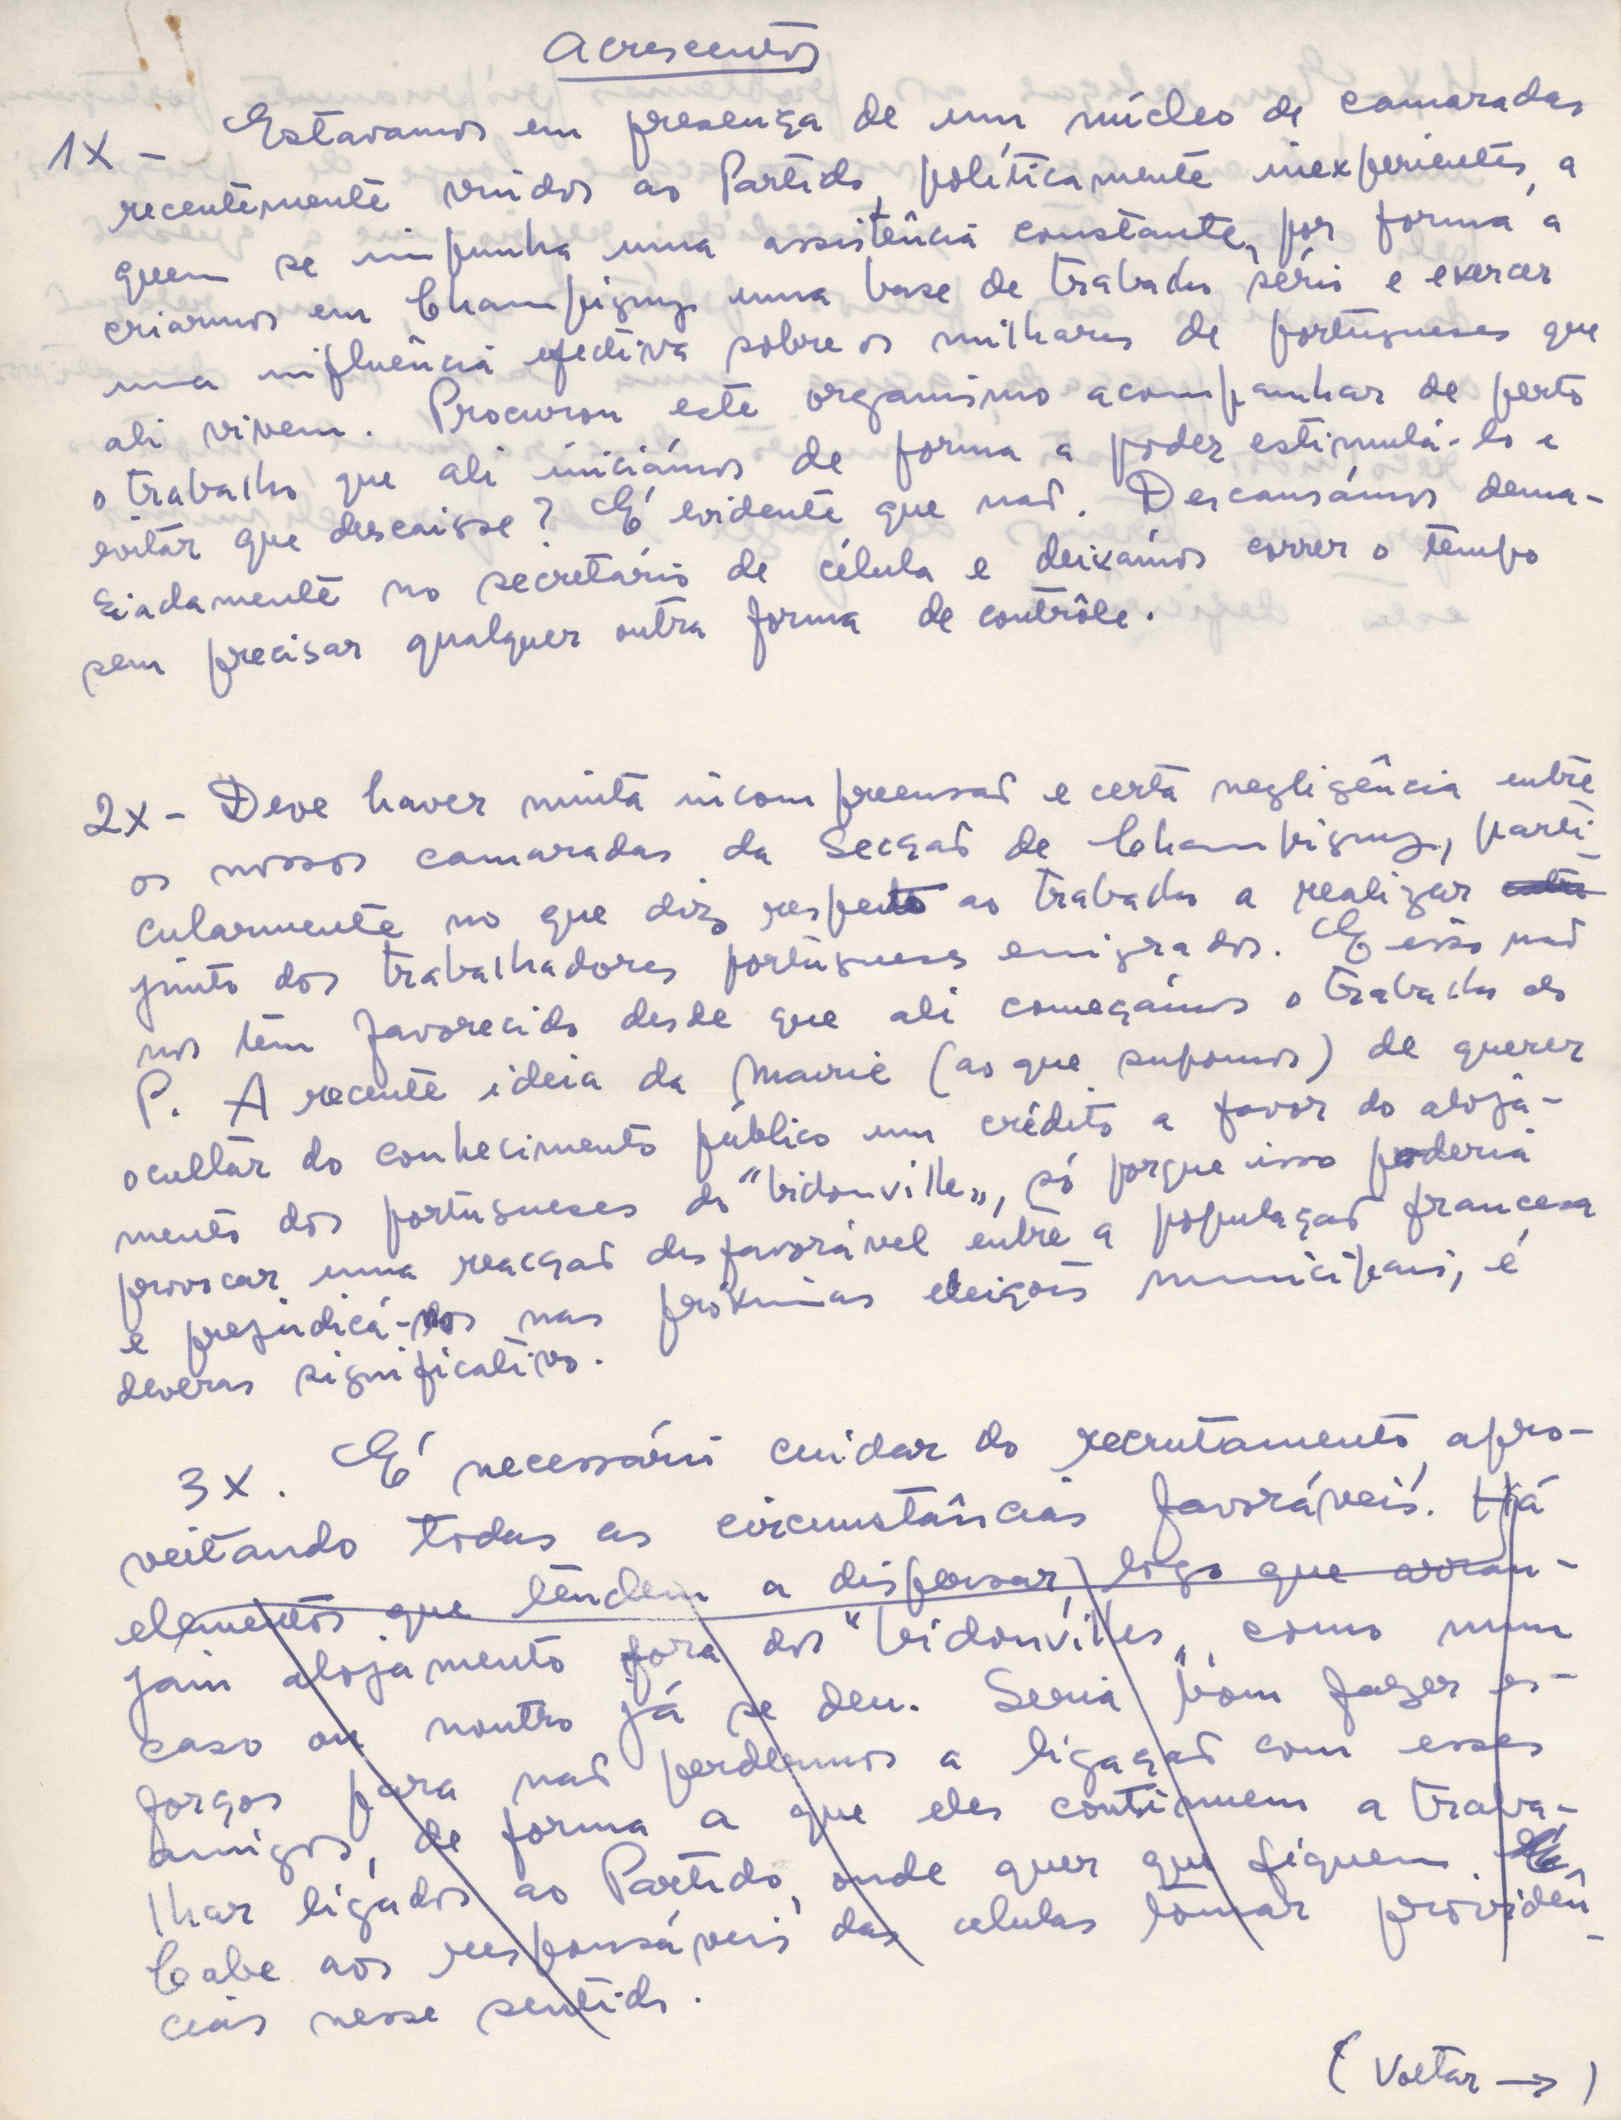 Acrescentos
1x - Estavamos em presença de um núcleo de camaradas
recentemente vindos ao Partido, políticamente inexperientes, a
quem se impunha uma assistência constante, por forma a
criarmos em Champigny uma base de trabalho sério e exercer
uma influência efectiva sobre os milhares de portugueses que
ali vivem. Procurou este organismo acompanhar de perto
o trabalho que ali iniciámos de forma a poder estimulá-lo e
evitar que descaisse? É evidente que não. Descansámos dema-
siadamente no secretário de célula e deixámos correr o tempo
sem precisar qualquer outra forma de contrôle.
2x - Deve haver muita incompreensão e certa negligência entre
os nossos camaradas da Secção de Champigny, parti-
cularmente no que diz respeito ao trabalho a realizar
junto dos trabalhadores portugueses emigrados. E isso não
nos tem favorecido desde que ali começámos o trabalho do
P. A recente ideia da Mairie (ao que supomos) de querer
ocultar do conhecimento público um crédito a favor do aloja-
mento dos portugueses do "bidonville", só porque isso poderia
provocar uma reacção desfavorável entre a população francesa
e prejudicá-los nas próximas eleições municipais, é
deveras significativo.
3x. É necessário cuidar do recrutamento, apro-
veitando todas as circunstâncias favoráveis. Há
elementos que tendem a dispersar, logo que arran-
jam alojamento fora dos "bidonvilles", como num
caso ou noutro já se deu. Seria bom fazer es-
forços para não perdermos a ligação com esses
amigos, de forma a que eles continuem a traba-
lhar ligados ao Partido, onde quer que fiquem.
Cabe aos responsáveis das células tomar providên-
cias nesse sentido.
(Voltar →)